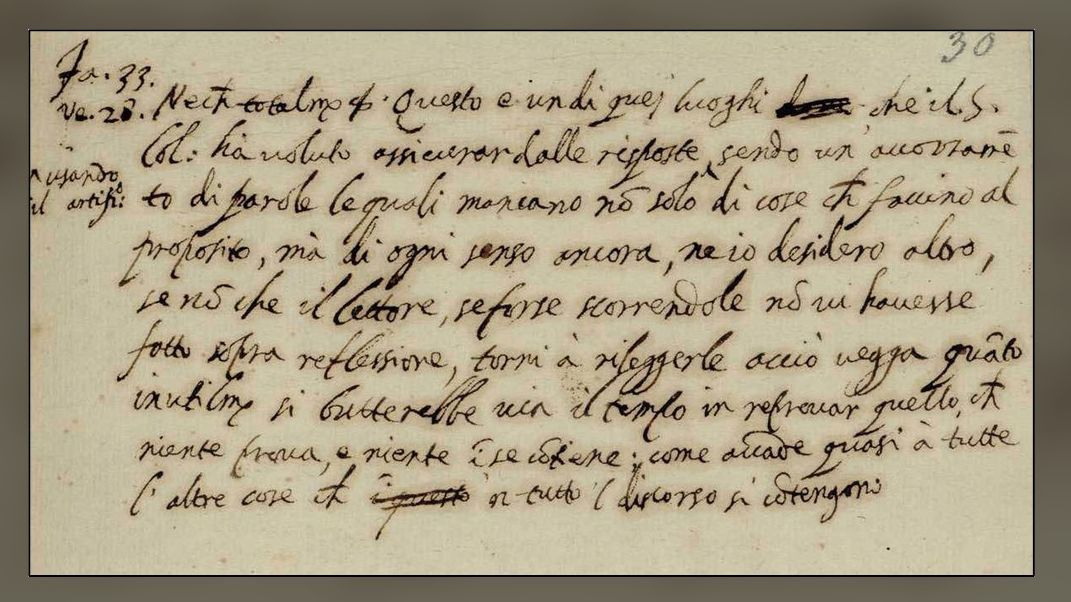 30
Fa. 33.
ve. 28. Nech totalmẽ &. Questo e un di quej luoghi che il. S.
Col: ha uoluto assicurar dalle risposte, sendo un' accozzamẽ
usando
il artifi: to di parole le quali mancano nõ solo di cose ch̃ faccino al
proposito, mà di ogni senso ancora, ne io desidero altro,
se nõ che il lettore, se forse scorrendole nõ ui hauesse
fatto sopra reflessione, torni à rileggerle acciò uegga quãto
inutilmẽ si butterebbe uia il tempo in reprouar quello, ch̃
niente proua, e niente ĩ se cõtiene: come accade quasi à tutte
l' altre cose ch̃ ĩ questo in tutto 'l discorso si cõtengono